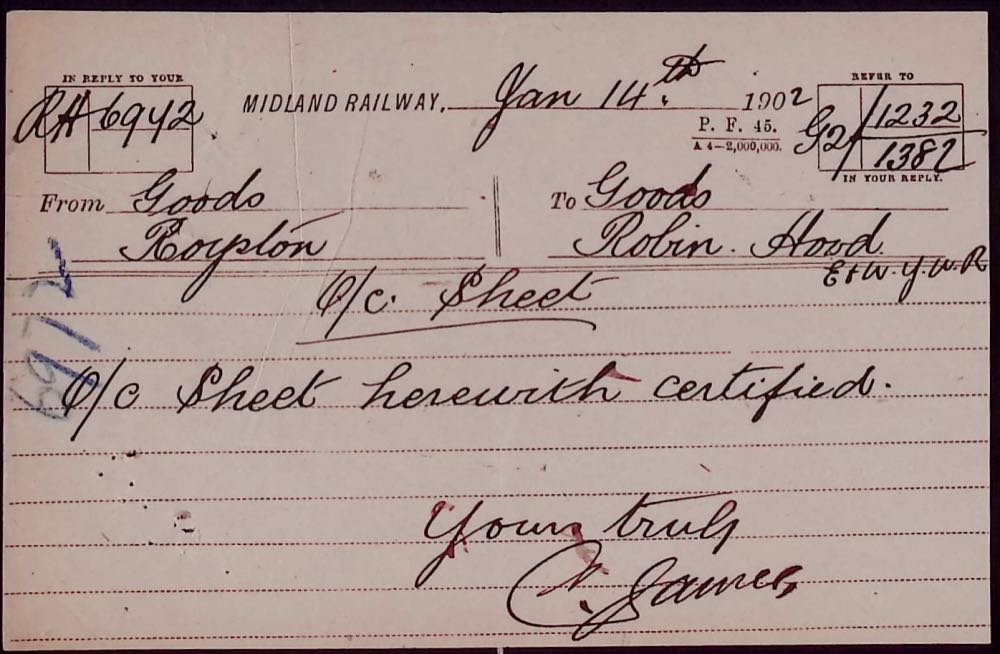 IN REPLY TO YOUR
RH 6942
MIDLAND RAILWAY, Jan 14th 1902
P. F. 45.
A 4—2,000,000.
REFER TO
G2/1232
1382
IN YOUR REPLY.
From Goods
Royston
To Goods
Robin Hood
E & W. Y. U. R
O/c. Sheet
6972
O/c Sheet herewith certified.
Yours truly
C. James